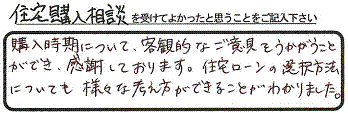 住宅購入相談を受けてよかったと思うことをご記入下さい
購入時期について、客観的なご意見をうかがうこと
ができ、感謝しております。住宅ローンの選択方法
についても 様々な考え方ができることがわかりました。